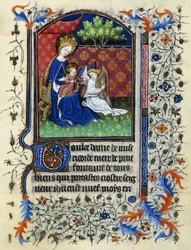 Doulce dame de mise
ricorde mere de pitie
fontainne de tous
biens qui portastes nostre seig
neur ihucrist neuf moys en